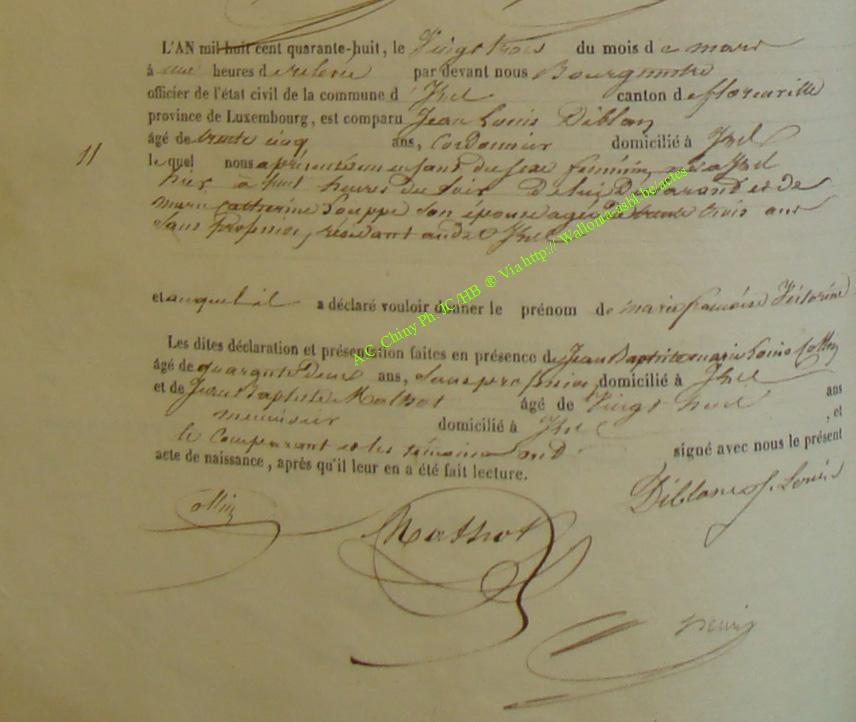 L'AN mil huit cent quarante-huit, le Vingt trois du mois de mars
à une heures de relevée par devant nous Bourgmestre
officier de l'état civil de la commune d'Izel canton de florenville
province de Luxembourg, est comparu Jean Louis Diblanc
âgé de trente cinq ans, Cordonnier domicilié à Izel
11
lequel nous a présenté un enfant du sexe féminin, né à Izel
hier à huit heures du soir De lui Declarant et de
marie Catherine Pouppe Son épouse agée De trente trois ans
sans Profession, résidant audit Izel
A.C. Chiny Ph. JC/HB ® Via http://Wallonia.asbl-be/actes
et auquel il a déclaré vouloir donner le prénom de marie françoise Victorine
Les dites déclaration et présentation faites en présence de Jean Baptiste marie Louis Collin
âgé de quarante Deux ans, Sans profession, domicilié à Izel
et de Jean Baptiste Mathot âgé de Vingt neuf ans
menuisier domicilié à Izel , et
le comparant et les témoins ont signé avec nous le présent
acte de naissance, après qu'il leur en a été fait lecture.
Diblanc J. Louis
Collin
Mathot